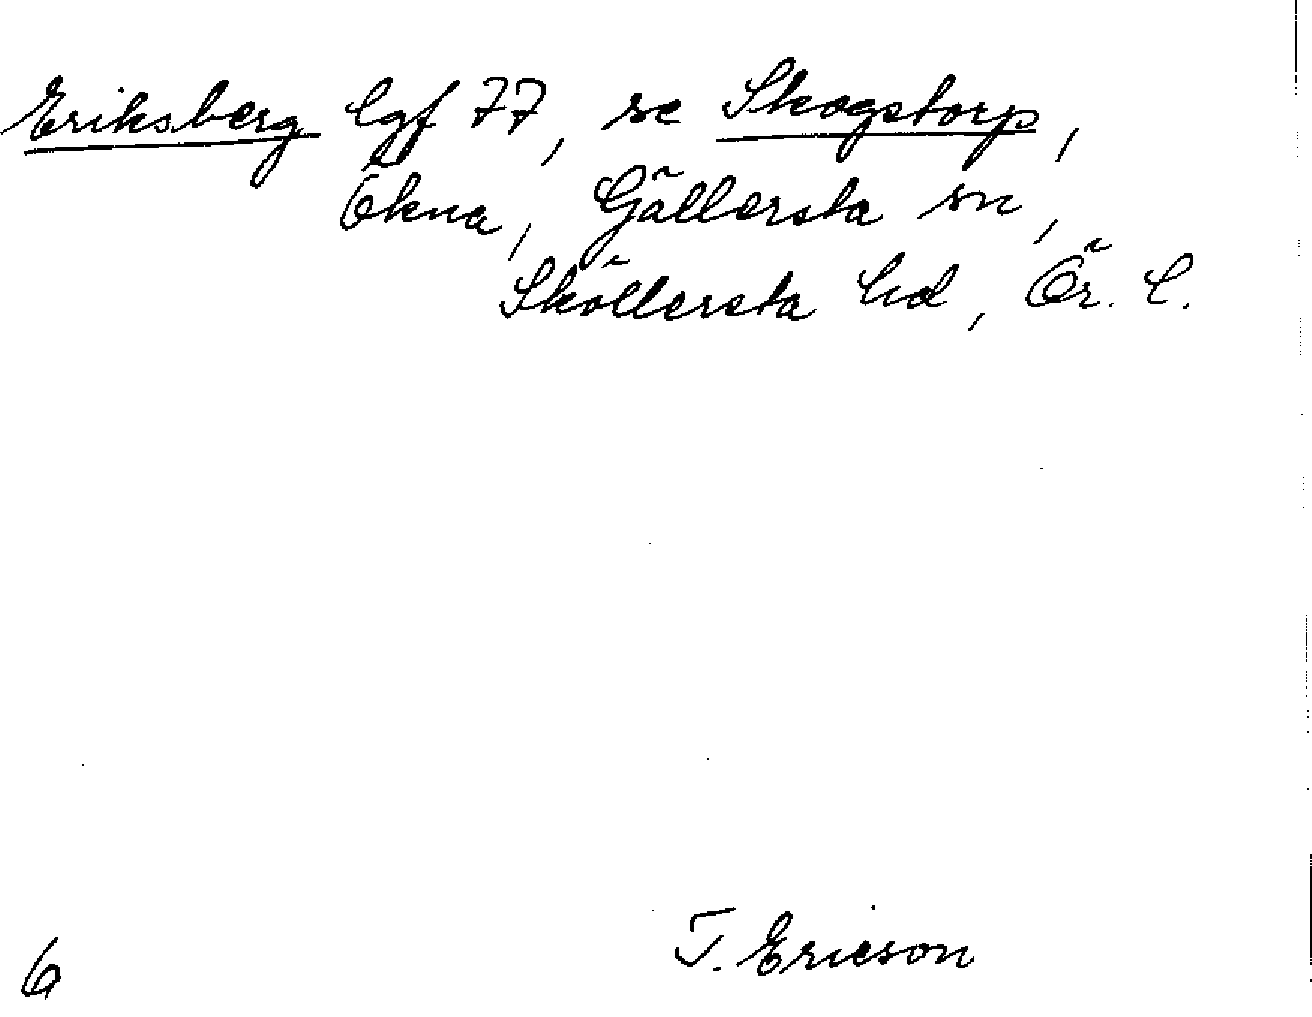 Eriksberg lgf 77, se Skogstorp,
Ökna, Gällersta sn,
Sköllersta hd, Ör. l.
T. Ericson
6